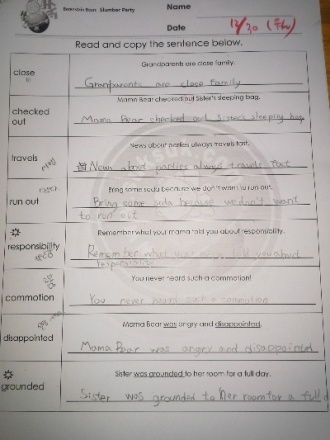 Berenstain Bears Slumber Party
Name
Date 12/20 (Thu)
Read and copy the sentence below.
close
Grandparents are close family.
Grandparents are close family
checked out
Mama Bear checked out Sister's sleeping bag.
Mama Bear checked out sleeping bag
travels
News about parties always travels fast.
News about parties always travels fast
run out
Bring some soda because we don't want to run out.
Bring some soda because we don't want
to run out
responsibility
Remember what your mama told you about responsibility.
Remember what about
responsibility
commotion
You never heard such a commotion!
You never such a commotion
disappointed
Mama Bear was angry and disappointed.
Mama Bear was angry and disappointed
grounded
Sister was grounded to her room for a full day.
Sister was grounded to her room for a full